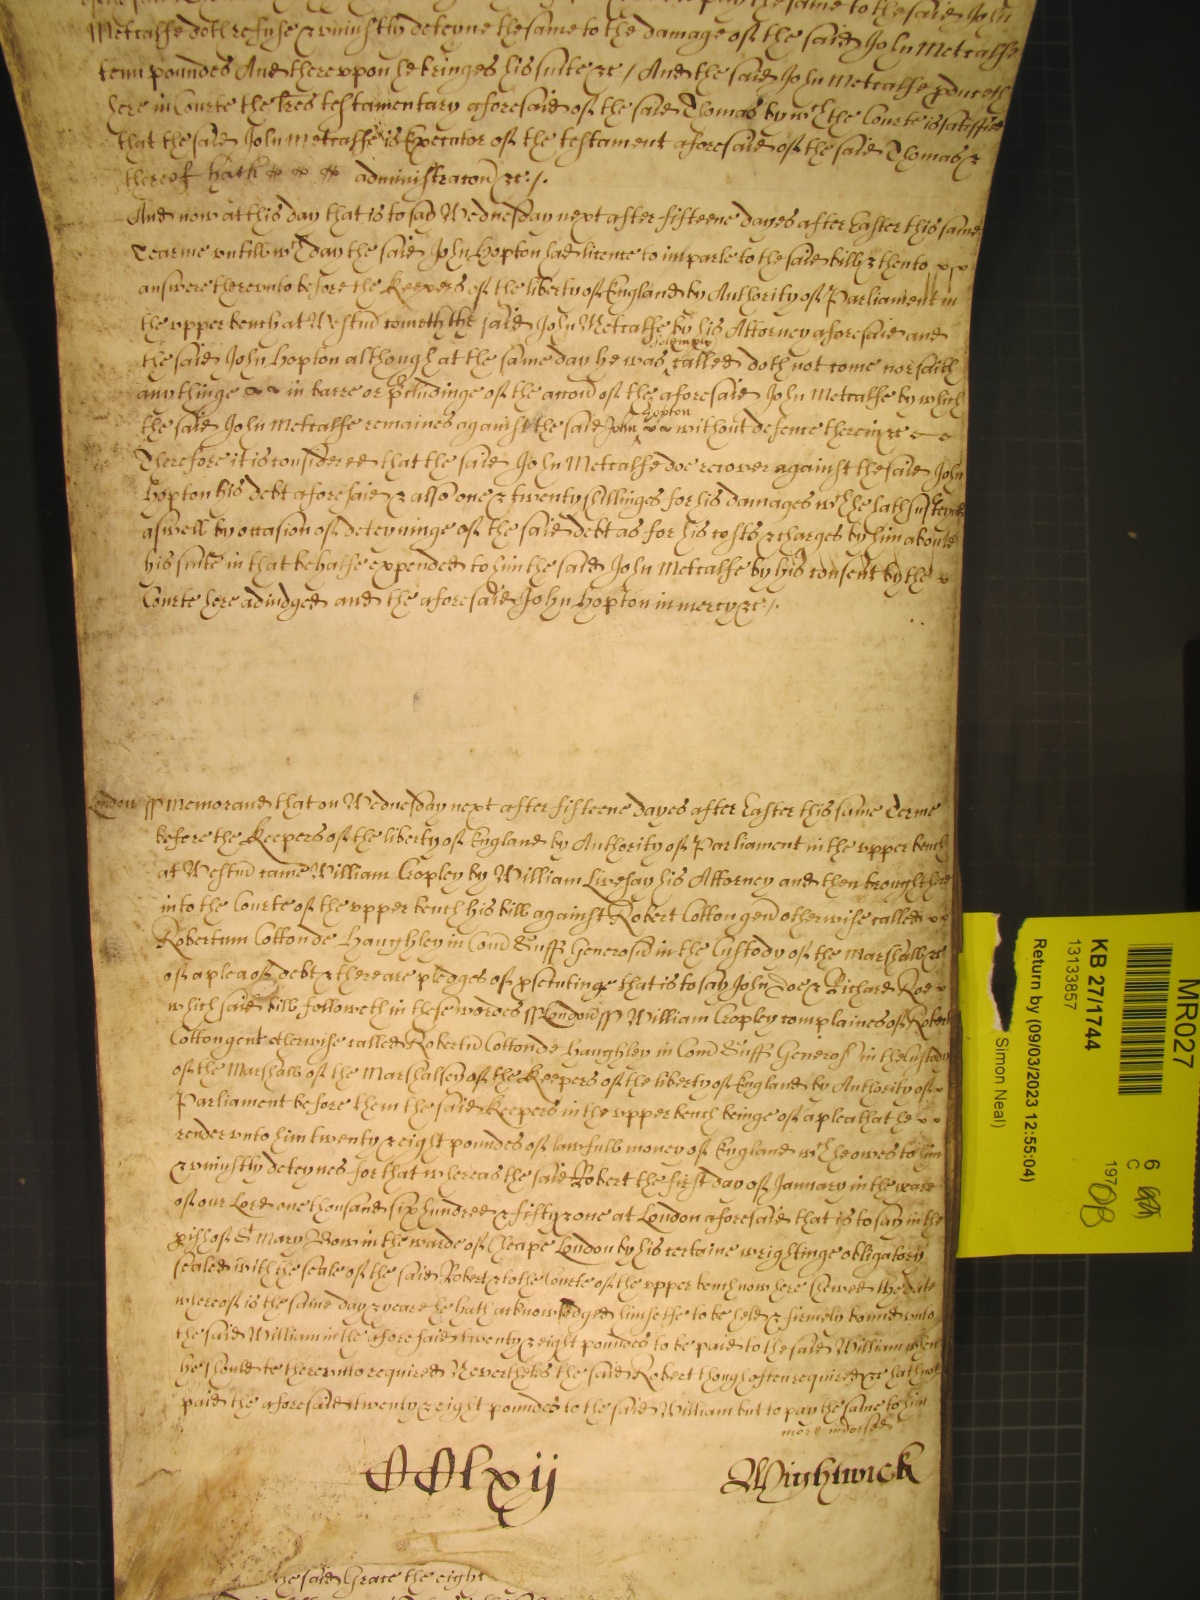 pay the same to the said John
Metcalfe doth refuse & uniustly deteyne the same to the damage of the said John Metcalfe
tenn poundes And thereuppon he bringes his suite &c / And the said John Metcalfe p͛duceth
here in Courte the tres testamentary aforesaid of the said Thomas by wch the Courte is satisffied
that the said John Metcalfe is Executor of the testament aforesaid of the said Thomas &
thereof hath administracon &c /.
And now at this day that is to say Wednesday next after fifteene dayes after Easter this same
Tearme untill wch day the said John Hopton had licence to imparle to the said bill & then to
answere thereunto before the Keepers of the liberty of England by Authority of Parliament in
the upper bench at Westm̃ cometh the said John Metcalfe by his Attorney aforesaid and
the said John Hopton although at the same day he was solemply called doth not come nor saith
any thinge in barre or p͛cludinge of the accon̄ of the aforesaid John Metcalfe by which
the said John Metcalfe remaines against the said John Hopton without defence therein &c
Therefore it is considered that the said John Metcalfe doe recover against the said John
Hopton his debt aforesaid & also one & twenty shillinges for his damages wch he hath susteined
aswell by occasion of deteyninge of the said debt as for his costs & charges by him aboute
his suite in that behalfe expended to him the said John Metcalfe by his consent by the
Courte here adiudged and the aforesaid John Hopton in mercy &c /.
London ss Memorand that on Wednesday next after fifteene dayes after Easter this same Terme
before the Keepers of the liberty of England by Authority of Parliament in the upper bench
at Westm̃ came William Cropley by William Livesay his Attorney and then brought here
into the Courte of the upper bench his bill against Robert Cotton gen̄ otherwise called
Robertum Cotton de Haughley in Com̄ Suff Generosū in the Custody of the Marshall &c
of a plea of debt & there are pledges of p͛secutinge that is to say John Doe & Richard Roe
which said bill followeth in these wordes ss London ss William Cropley complaines of Robert
Cotton gent otherwise called Robertū Cotton de Haughley in Com̄ Suff Generos̄ in the Custody
of the Marshall of the Marshalsey of the Keepers of the liberty of England by Authority of
Parliament before them the said Keepers in the upper bench beinge of a plea that he
render unto him twenty & eight poundes of lawfull money of England wch he owes to him
& uniustly deteynes for that whereas the said Robert the first day of January in the yeare
of our Lord one thousand six hundred & fifty & one at London aforesaid that is to say in the
p͛ish of St Mary Bow in the warde of Cheape London by his certaine wrightinge obligatory
sealed with the seale of the said Robert & to the Courte of the upper bench now here shewed the date
whereof is the same day & yeare he hath acknowledged himselfe to be held & firmely bound unto
the said William in the aforesaid twenty & eight poundes to be paid to the said William when
he should be thereunto required Neverthelˢ the said Robert though often required &c hath not
paid the aforesaid twenty & eight poundes to the said William but to pay the same to him
more indorsed
CClxij Wightwick
the said Grace the eight
MR027
KB 27/1744
13133857
Return by (09/03/2023 12:55:04)
Simon Neal)
6
C
197